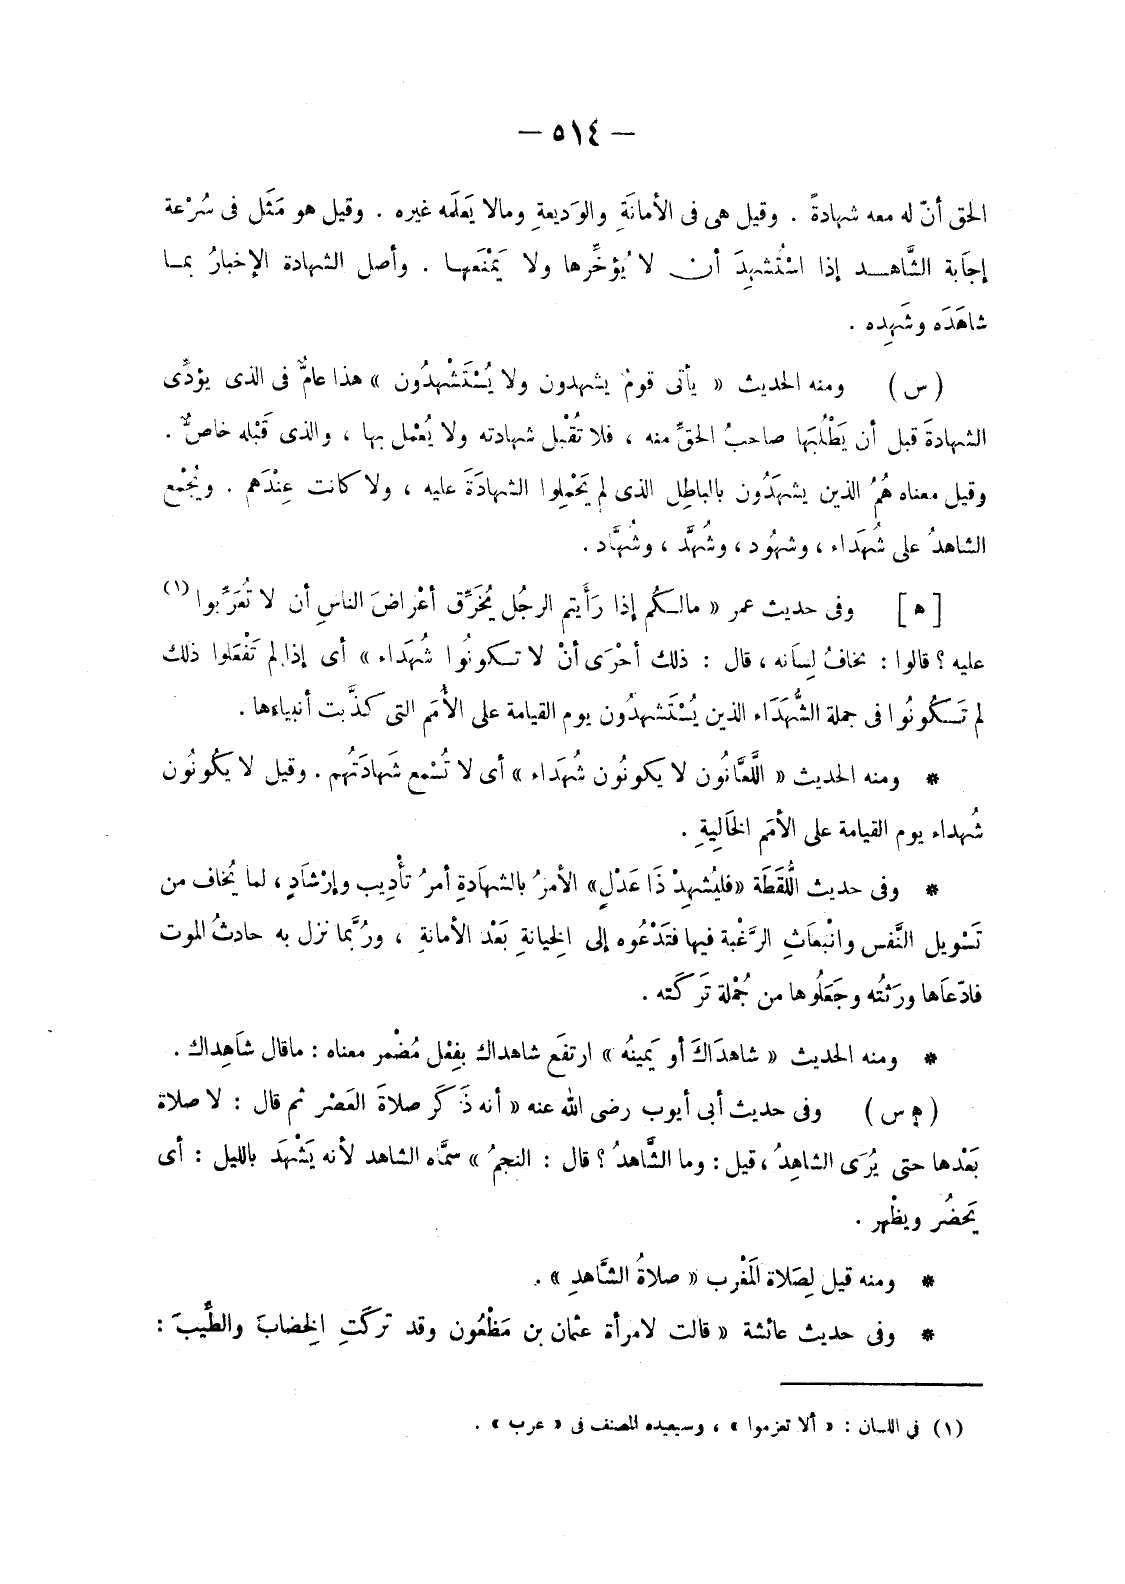 — ٥١٤ —
الحق أنّ له معه شهادةً . وقيل هى فى الأمانَةِ والوَديعةِ ومالا يَعلَمه غيره . وقيل هو مَثَل فى سُرْعة
إجَابة الشَّاهـــد إذا اسْتُشهِدَ أن لا يُؤخِّرها ولا يَمْنَعهـا . وأصل الشهادة الإخبارُ بمـا
شاهَدَه وشَهِده .
( س ) ومنه الحديث « يأتى قومٌ يشهدون ولا يُسْتَشْهدُون » هذا عامٌّ فى الذى يؤدِّى
الشهادةَ قبل أن يَطْلُبَها صاحبُ الحقِّ منه ، فلا تُقْبل شهادته ولا يُعْمل بها ، والذى قَبْله خاصٌّ .
وقيل معناه هُمُ الذين يشهَدُون بالباطِل الذى لم يَحْمِلوا الشهادَةَ عليه ، ولا كانت عِنْدَهم . ويُجْمْع
الشاهدُ على شُهَداء ، وشهُود ، وشُهَّد ، وشُهَّاد .
[ ه ] وفى حديث عمر « مالـكُم إذا رَأيتم الرجُل يُخَرِّق أعْراضَ الناسِ أن لا تُعَرِّبوا (١)
عليه ؟ قالوا : نخافُ لِسَانه ، قال : ذلك أحْرَى أنْ لا تـكونُوا شُهَداء » أى إذا لم تَفْعَلوا ذلك
لم تَـكُونُوا فى جملة الشُّهَدَاء الذين يُسْتَشهدُون يوم القيامة على الأُمَم التى كذَّبت أنبياءها .
* ومنه الحديث « اللَّعَّانُون لا يكونُون شُهَداء » أى لا تُسْمع شَهادَتُهم . وقيل لا يَكُونُون
شُهداء يوم القيامة على الأمَم الخَالِيةِ .
* وفى حديث اللُّقَطَة «فليُشهِدْ ذَا عَدْلٍ» الأمرُ بالشهادَةِ أمرُ تأْدِيب وإرْشَادٍ ، لما يُخاف من
تَسْويل النَّفس وانْبعَاثِ الرَّغْبة فيها فتَدْعُوه إلى الخِيانةِ بَعْد الأمانةِ ، ورُبَّما نزل به حادثُ الموت
فادّعَاها ورَثتُه وجَعَلُوها من جُمْلة تَرِكَته .
* ومنه الحديث « شاهدَاكَ أو يَمينُه » ارتفَع شاهداك بفِعْل مُضْمر معناه : ماقال شاَهِداك .
( ه س ) وفى حديث أبى أيوب رضى الله عنه « أنه ذَكَر صلاةَ العَصْر ثم قال : لا صلاة
بَعْدها حتى يُرَى الشاهِدُ ، قيل : وما الشَّاهدُ ؟ قال : النجمُ » سمَّاه الشاهد لأنه يَشْهَدَ بالليل : أى
يَحضُر ويظْهر .
* ومنه قيل لِصَلاة المَغْرب « صلاةُ الشَّاهدِ » .
* وفى حديث عائشة « قالت لامرأة عثمان بن مَظْعُون وقد تركَتِ الخِضابَ والطِّيبَ :
(١) في اللسان : « ألا تعزموا » ، وسيعيده المصنف فى « عرب » .